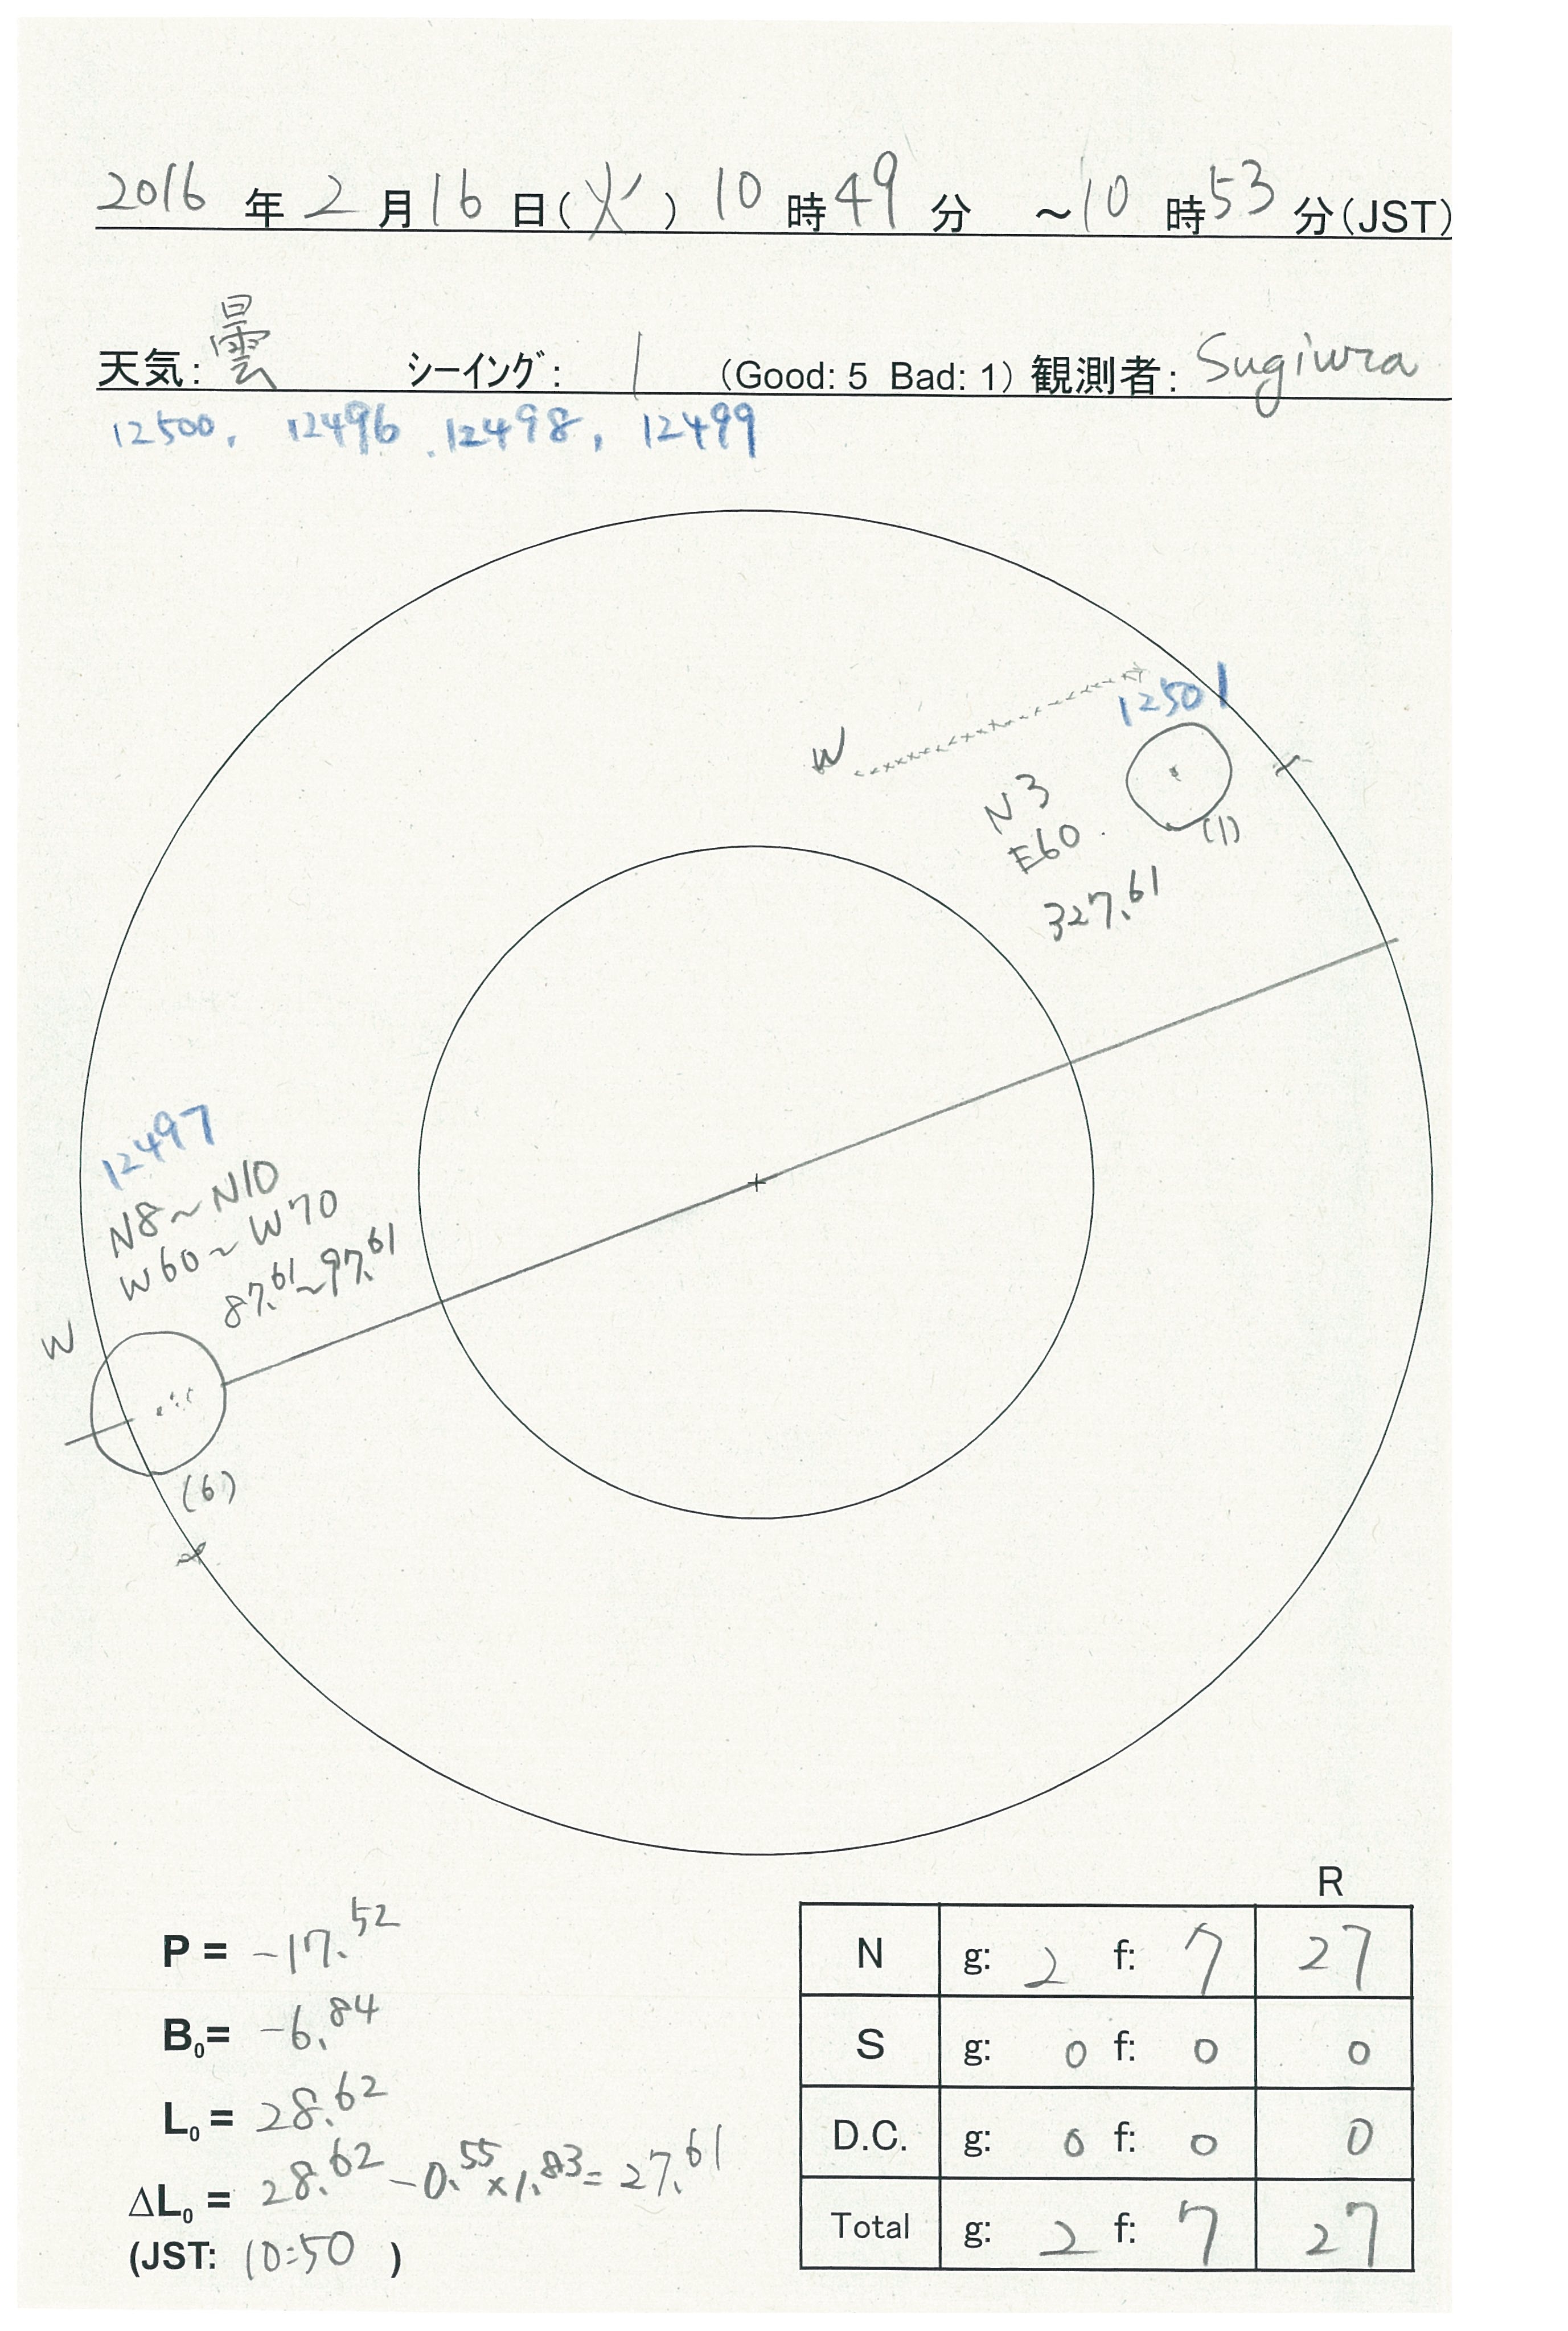 2016 年 2 月 16 日(火) 10 時 49 分 ~10 時 53 分(JST)
天気: 曇 シーイング: 1 (Good: 5 Bad: 1) 観測者: Sugiura
12500, 12496, 12498, 12499
12501
W
N3
(1)
E60
327.61
12497
N8~N10
W60~W70
87.61~97.61
W
(6)
R
P = -17.52
N g: 2 f: 7 27
B0= -6.84
S g: 0 f: 0 0
L0 = 28.62
D.C. g: 0 f: 0 0
ΔL0 = 28.62 - 0.55×1.83 = 27.61
Total g: 2 f: 7 27
(JST: 10:50 )